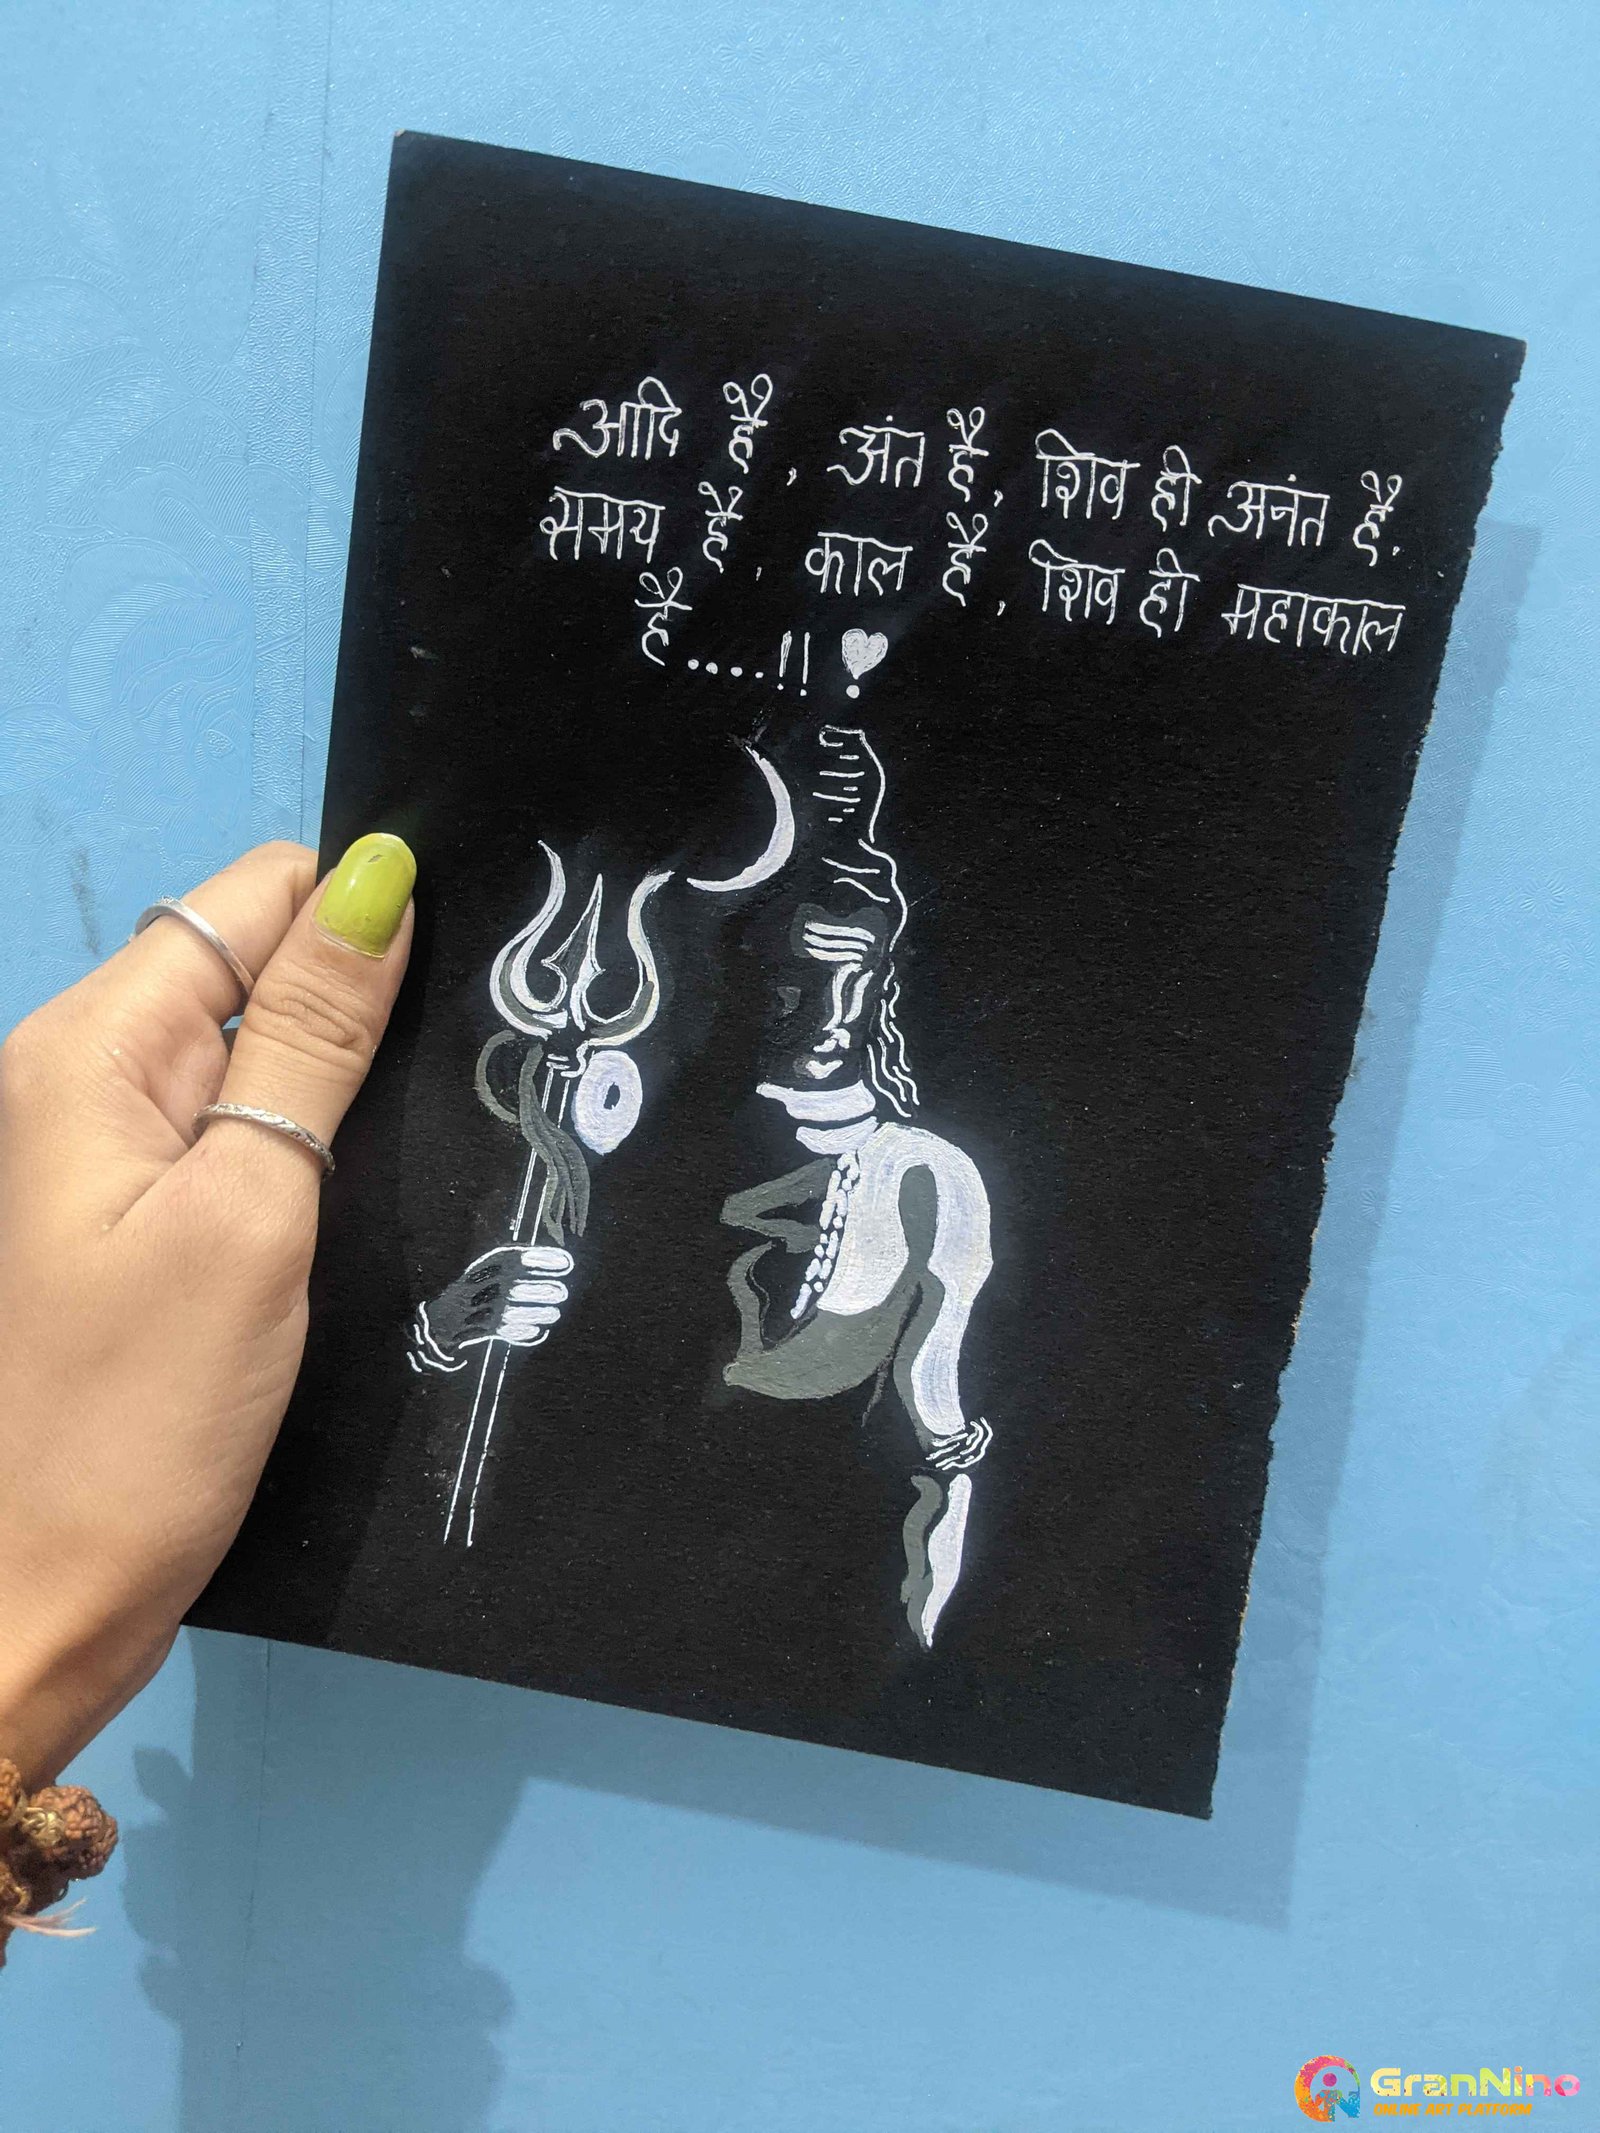 आदि है, अंत है, शिव ही अनंत है.
समय है, काल है, शिव ही महाकाल
है....!!
GranNino
ONLINE ART PLATFORM